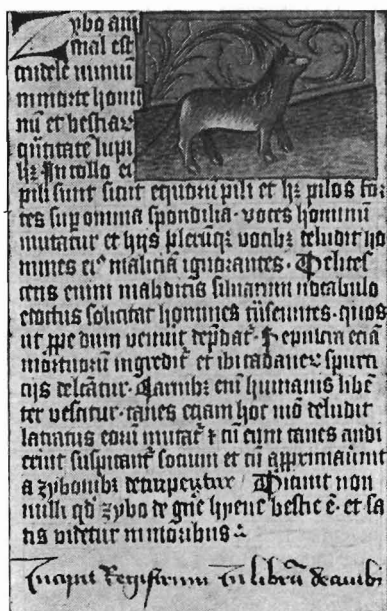 Zybo ani
mal est
crudele nimiū
in morte homi
nū et bestiaꝝ
qūtitatē lupi
hꝫ In collo ei⁹
pili sunt sicut equoꝝ pili et hꝫ pilos for
tes sup omnia spondilia · voces hominū
mutatur et hijs plerūqꝫ vocibꝫ deludit ho
mines ei⁹ maliciā ignorantes · Delites
cens enim in abditis siluarum uocabulo
edoctus solicitat homines trāseuntes · quos
ut ꝓpe dum venint dep̄dat · Sepulcra eciā
mortuorū ingredit᷑ et ibi cadaueꝝ spurci
cijs delc̄atur · Carnibꝫ eni humanis libē
ter vescitur · canes eciam hoc mō deludit
latratus eorū mutat᷑ ⁊ cū eum canes audi
erint suspicant᷑ socium et cū appximauerit
a zybonibꝫ decerpuntur / Dicunt non
nulli qd̓ zybo de gn̄e hyene bestie ē · et sa
tis videtur in moribus ∴
Incipit Registrum In librū de auibꝫ